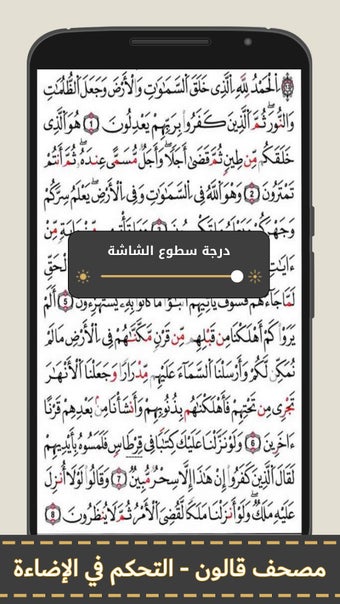 الْحَمْدُ لِلَّهِ الَّذِي خَلَقَ السَّمَٰوَٰتِ وَالْأَرْضَ وَجَعَلَ الظُّلُمَٰتِ
وَالنُّورَ ثُمَّ الَّذِينَ كَفَرُوا بِرَبِّهِمْ يَعْدِلُونَ 1 هُوَ الَّذِي
خَلَقَكُم مِّن طِينٍ ثُمَّ قَضَىٰ أَجَلًا وَأَجَلٌ مُّسَمًّى عِندَهُ ثُمَّ أَنتُمْ
تَمْتَرُونَ 2 وَهُوَ اللَّهُ فِي السَّمَٰوَٰتِ وَفِي الْأَرْضِ يَعْلَمُ سِرَّكُمْ
وَجَهْرَكُمْ
درجة سطوع الشاشة
ءَايَٰتِ الْحَقِّ
لَمَّا جَاءَهُمْ فَسَوْفَ يَأْتِيهِمْ أَنۢبَٰٓؤُا مَا كَانُوا بِهِ يَسْتَهْزِءُونَ 5 أَلَمْ
يَرَوْا كَمْ أَهْلَكْنَا مِن قَبْلِهِم مِّن قَرْنٍ مَّكَّنَّٰهُمْ فِي الْأَرْضِ مَا لَمْ
نُمَكِّن لَّكُمْ وَأَرْسَلْنَا السَّمَاءَ عَلَيْهِم مِّدْرَارًا وَجَعَلْنَا الْأَنْهَٰرَ
تَجْرِي مِن تَحْتِهِمْ فَأَهْلَكْنَٰهُم بِذُنُوبِهِمْ وَأَنشَأْنَا مِنۢ بَعْدِهِمْ قَرْنًا
ءَاخَرِينَ 6 وَلَوْ نَزَّلْنَا عَلَيْكَ كِتَٰبًا فِي قِرْطَاسٍ فَلَمَسُوهُ بِأَيْدِيهِمْ
لَقَالَ الَّذِينَ كَفَرُوا إِنْ هَٰذَا إِلَّا سِحْرٌ مُّبِينٌ 7 وَقَالُوا لَوْلَا أُنزِلَ
عَلَيْهِ مَلَكٌ وَلَوْ أَنزَلْنَا مَلَكًا لَّقُضِيَ الْأَمْرُ ثُمَّ لَا يُنظَرُونَ 8
مصحف قالون - التحكم في الإضاءة